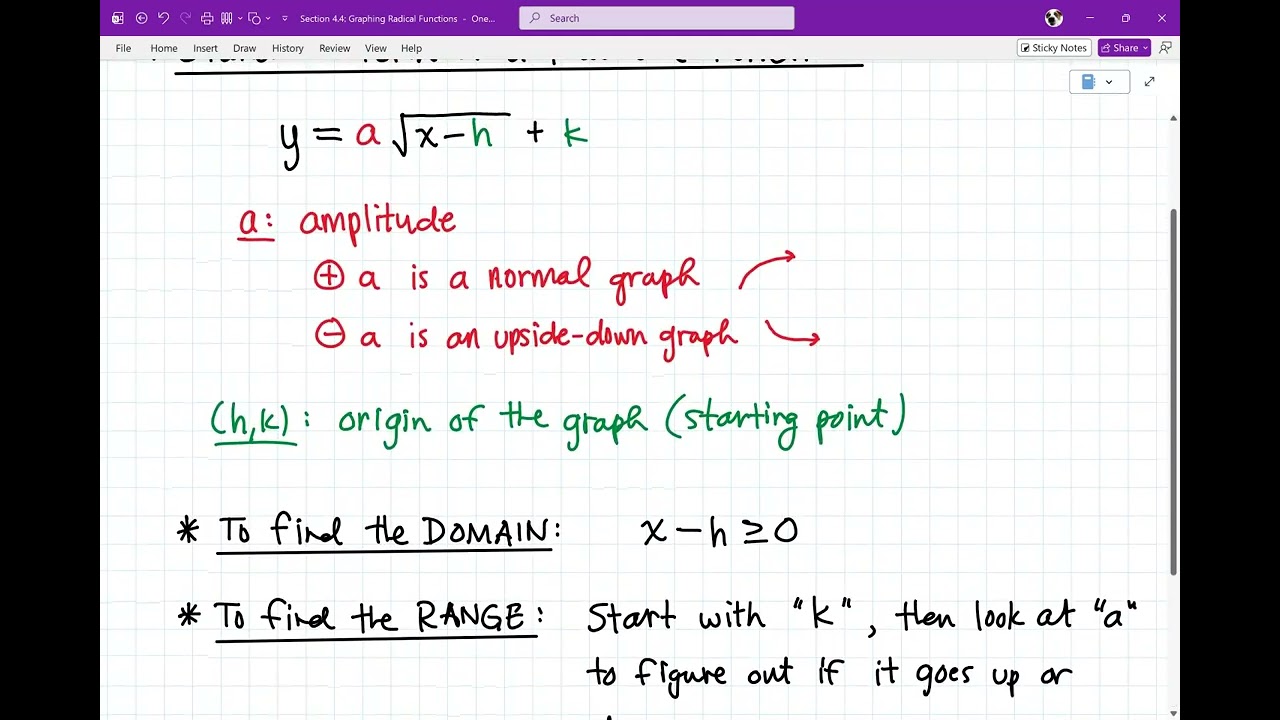 Section 4.4; Graphing Radical Functions - One...
Search
File Home Insert Draw History Review View Help
Sticky Notes
Share
y = a √x-h + k
a: amplitude
⊕ a is a normal graph
⊖ a is an upside-down graph
(h,k): origin of the graph (starting point)
* To find the DOMAIN: x - h ≥ 0
* To find the RANGE: Start with "k", then look at "a"
to figure out if it goes up or